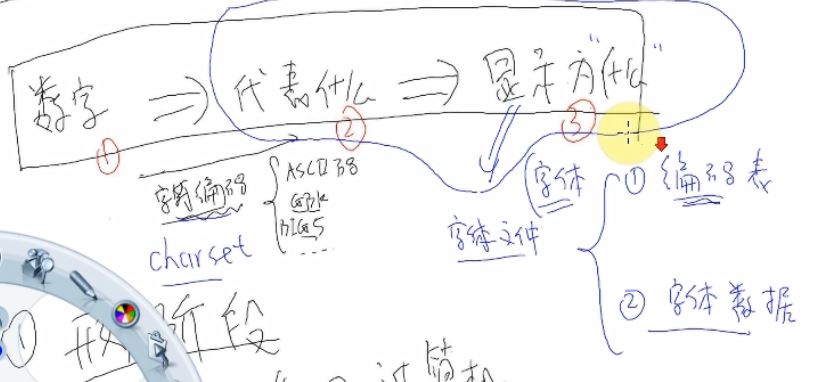 数字 => 代表什么 => 显示为"什么"
① ② ③
字符编码 { ASCII码
GBK
BIG5
......
charset
(字体
字体文件 { ① 编码表
② 字体数据
① 阶段
计算机